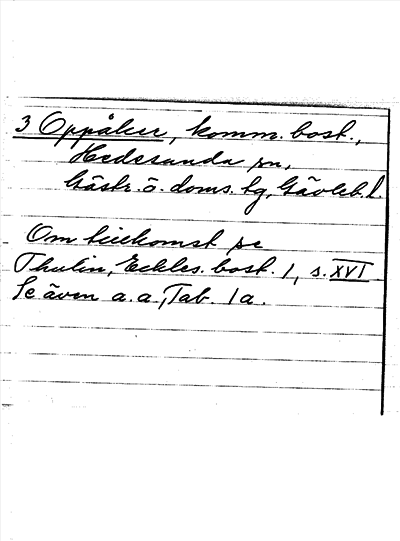 3 Oppåker, komm. bost.,
Hedesunda sn,
Gästr. ö. doms. tg, Gävleb. l.
Om tillkomst se
Thulin, Eckles. bost. 1, s. XVI
Se även a.a., Tab. 1a.